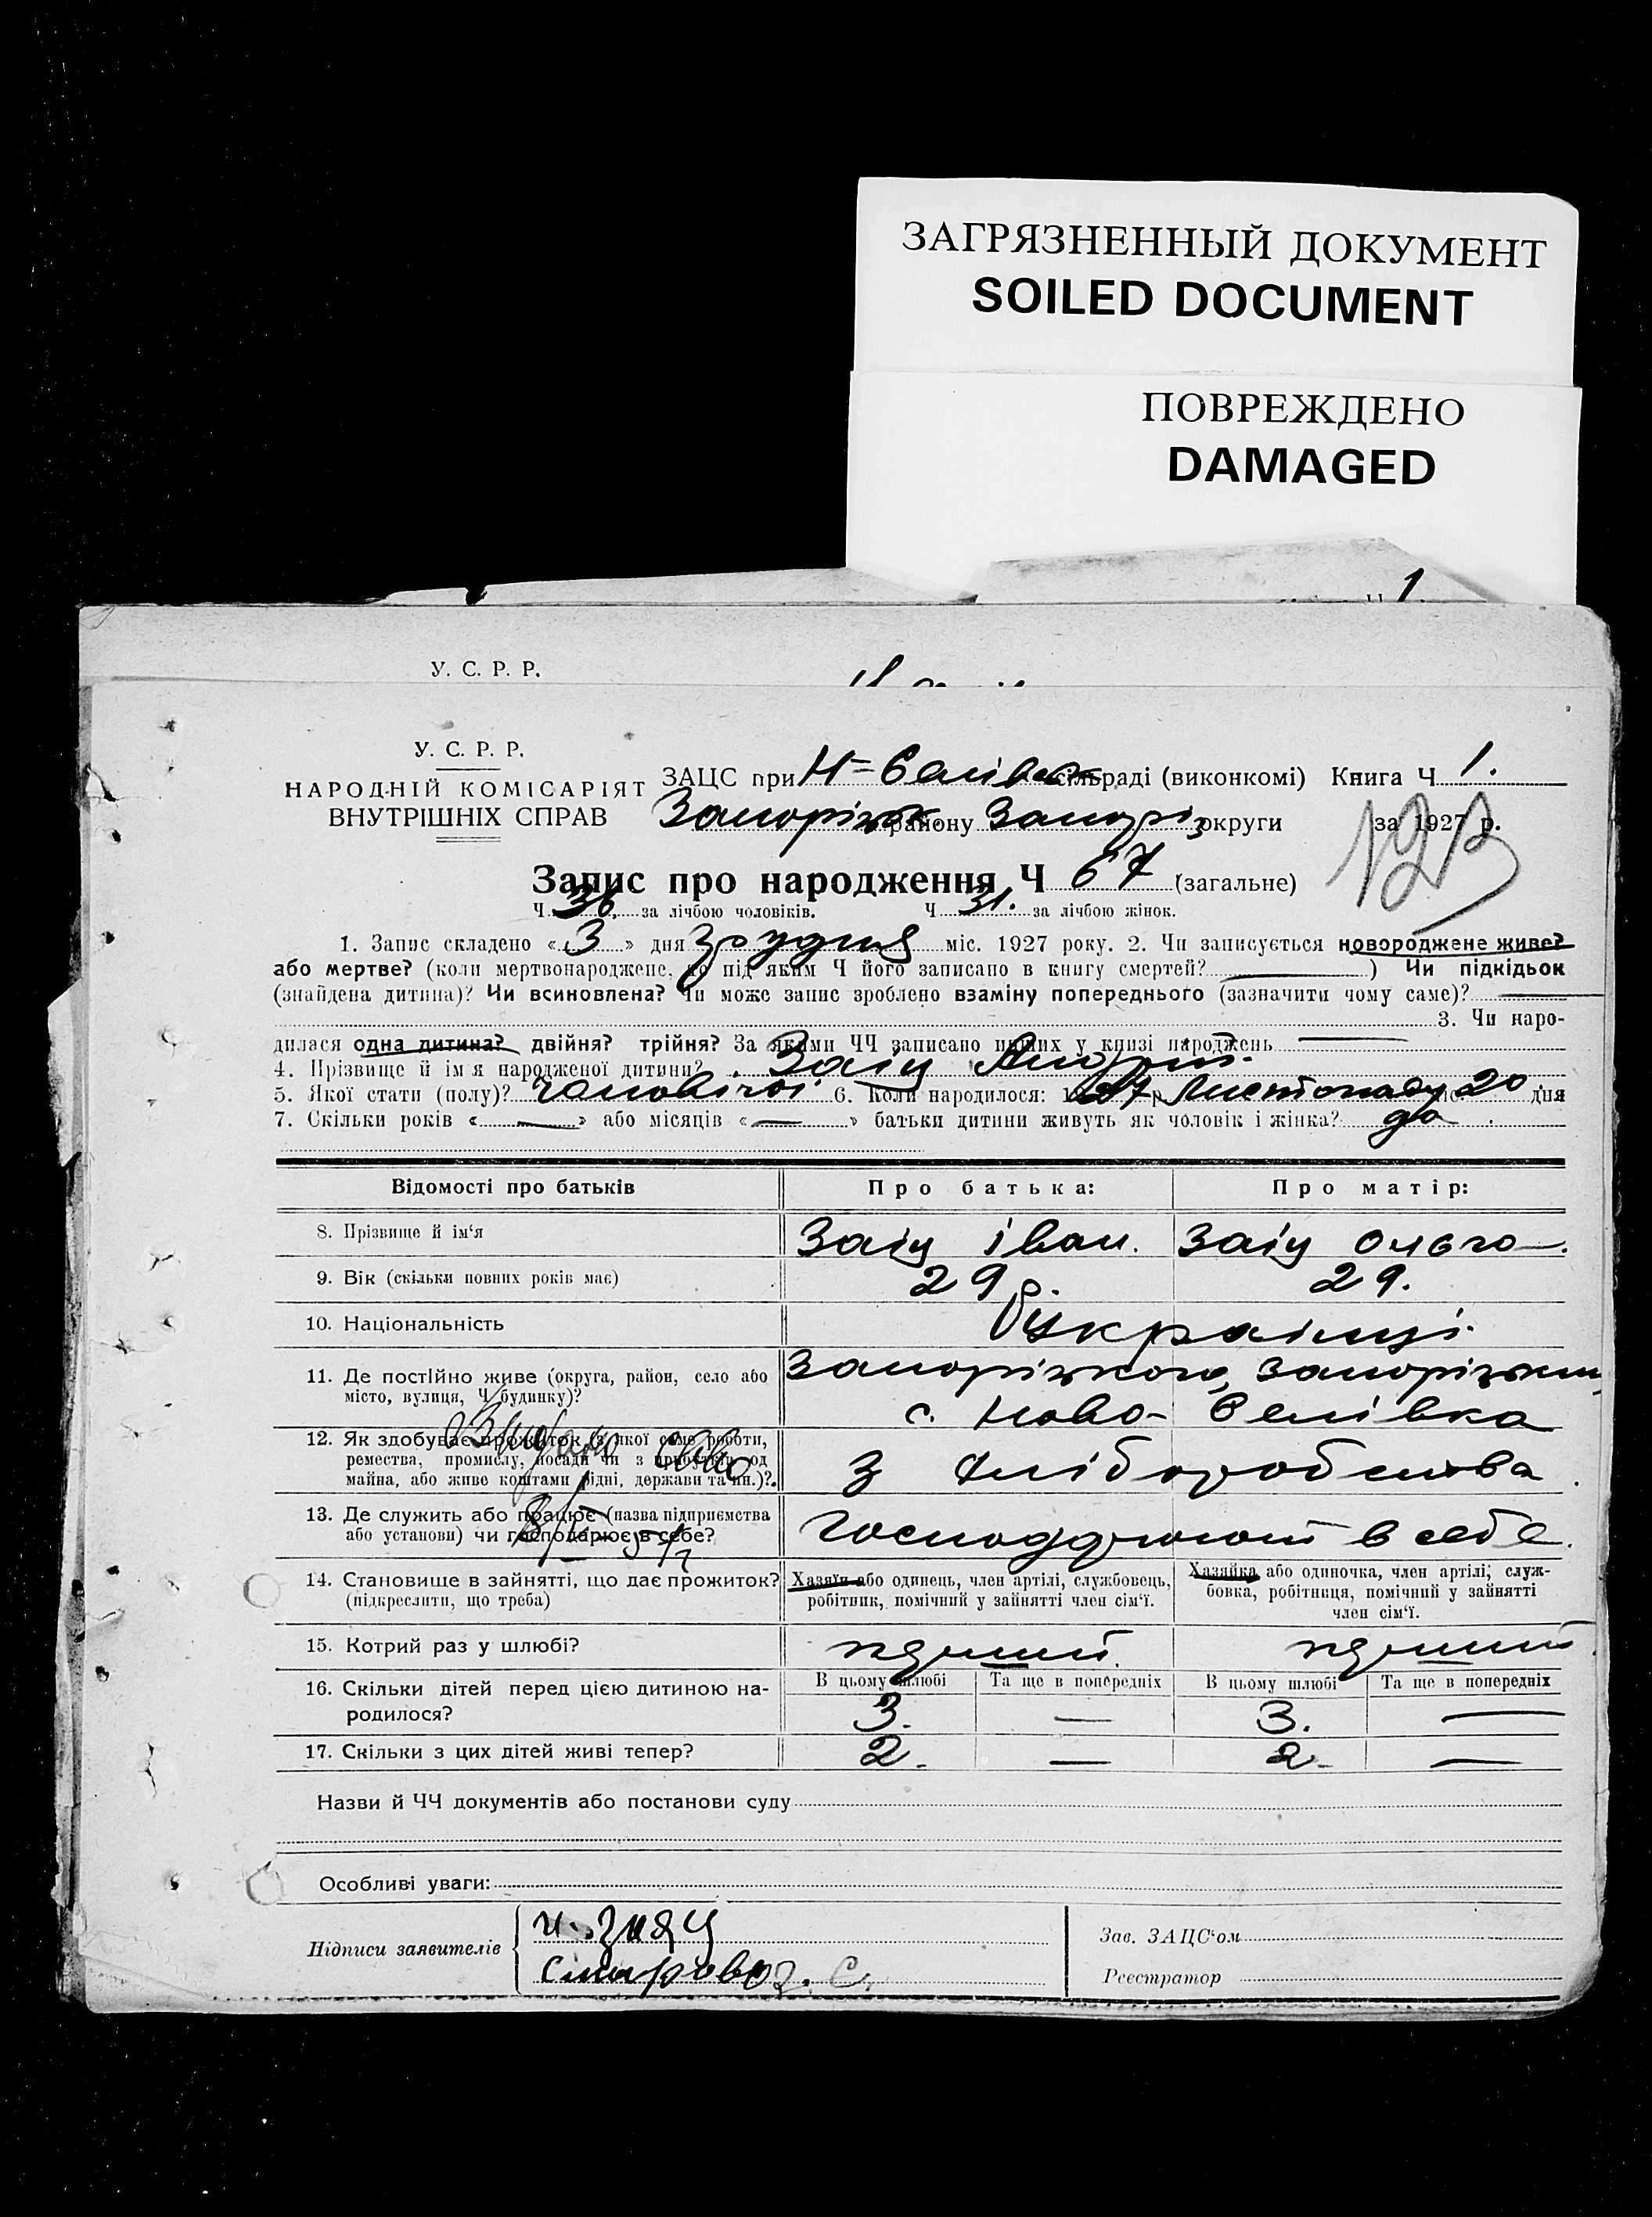 ЗАГРЯЗНЕННЫЙ ДОКУМЕНТ
SOILED DOCUMENT
ПОВРЕЖДЕНО
DAMAGED
1.
У. С. Р. Р.
У. С. Р. Р.
НАРОДНІЙ КОМІСАРІЯТ
ВНУТРІШНІХ СПРАВ
ЗАЦС при сільраді (виконкомі) Книга Ч 1.
району округи за 1927 р.
Запис про народження Ч 67 (загальне)
Ч 36 за лічбою чоловіків. Ч 31. за лічбою жінок.
1. Запис складено « 3 » дня грудня міс. 1927 року. 2. Чи записується новороджене живе?
або мертве? (коли мертвонароджене, то під яким Ч його записано в книгу смертей? ) Чи підкідьок
(знайдена дитина)? Чи всиновлена? Чи може запис зроблено взаміну попереднього (зазначити чому саме)?
3. Чи наро-
дилася одна дитина? двійня? трійня? За якими ЧЧ записано инших у книзі народжень
4. Прізвище й ім'я народженої дитини? Заіц Андрій.
5. Якої стати (полу)? 6. Коли народилося: 1927 р. Листопаду 20 дня
7. Скільки років « — » або місяців « — » батьки дитини живуть як чоловік і жінка? да
Відомості про батьків Про батька: Про матір:
8. Прізвище й ім'я Заіц іван. Заіц Ольга.
9. Вік (скільки повних років має) 29 р. 29.
10. Національність Українці.
11. Де постійно живе (округа, район, село або
місто, вулиця, Ч будинку)?
с. Ново-
12. Як здобуває прожиток (з якої саме роботи,
ремества, промислу, посади чи з прибутків од
майна, або живе коштами рідні, держави та ин.)?
з хліборобства
13. Де служить або працює (назва підприємства
або установи) чи господарює в себе?
в себе.
14. Становище в зайнятті, що дає прожиток?
(підкреслити, що треба)
Хазяїн або одинець, член артілі, службовець,
робітник, помічний у зайнятті член сім'ї.
Хазяйка або одиночка, член артілі; служ-
бовка, робітниця, помічний у зайнятті
член сім'ї.
15. Котрий раз у шлюбі?
16. Скільки дітей перед цією дитиною на-
родилося?
В цьому шлюбі Та ще в попередніх В цьому шлюбі Та ще в попередніх
3. — 3. —
17. Скільки з цих дітей живі тепер? 2. — 2. —
Назви й ЧЧ документів або постанови суду
Особливі уваги:
Підписи заявителів
Зав. ЗАЦС'ом
Реєстратор